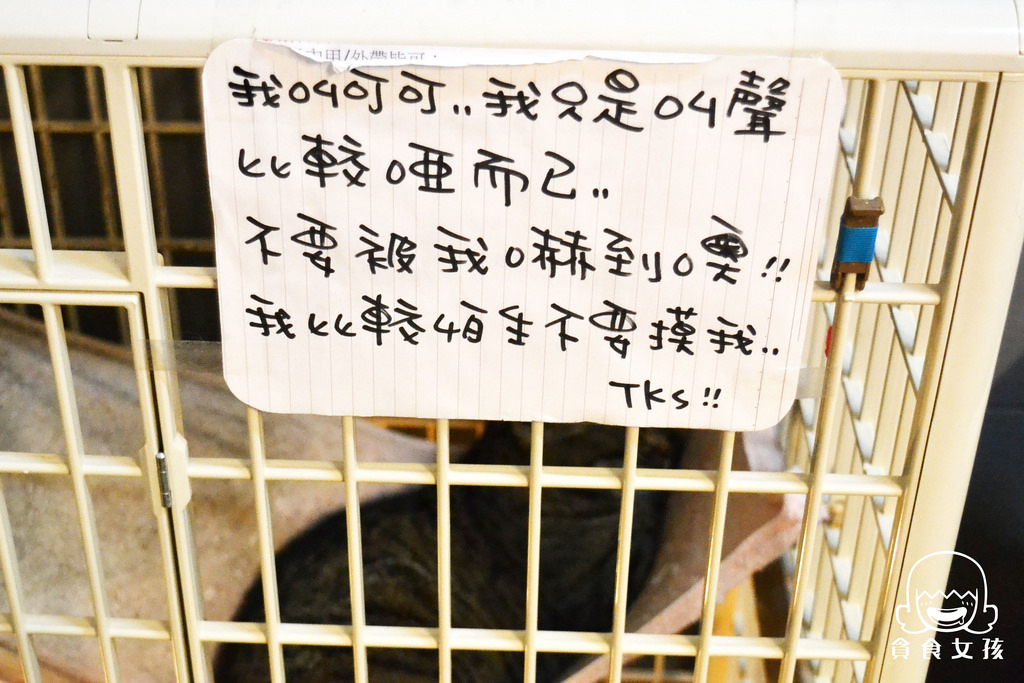 內用/外帶皆可.
我叫可可..我只是叫聲
比較啞而已..
不要被我嚇到噢!!
我比較怕生不要摸我..
TKs!!
貪食女孩